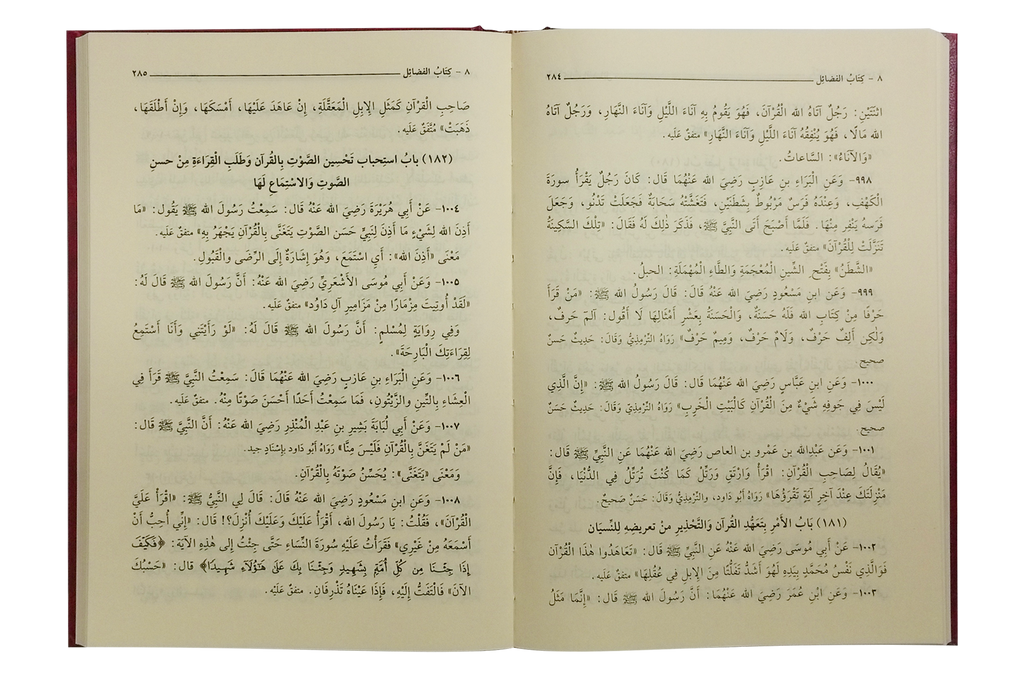 ٨ - كِتَابُ الفَضَائِل ٢٨٤
اثْنَتَيْنِ: رَجُلٌ آتَاهُ الله الْقُرْآنَ، فَهُوَ يَقُومُ بِهِ آنَاءَ اللَّيْلِ وَآنَاءَ النَّهَارِ، وَرَجُلٌ آتَاهُ
الله مَالًا، فَهُوَ يُنْفِقُهُ آنَاءَ اللَّيْلِ وَآنَاءَ النَّهَارِ» متفقٌ عَلَيه.
«وَالآنَاءُ»: السَّاعاتُ.
٩٩٨- وَعَنِ الْبَرَاءِ بنِ عَازِبٍ رَضِيَ الله عَنْهُمَا قَالَ: كَانَ رَجُلٌ يَقْرَأُ سورَةَ
الْكَهْفِ، وَعِنْدَهُ فَرَسٌ مَرْبُوطٌ بِشَطَنَيْنِ، فَتَغَشَّتْهُ سَحَابَةٌ فَجَعَلَتْ تَدْنُو، وَجَعَلَ
فَرَسهُ يَنْفِر مِنْهَا. فَلَمَّا أَصْبَحَ أَتَى النَّبِيَّ ﷺ، فَذَكَرَ ذٰلِكَ لَهُ فَقَالَ: «تِلْكَ السَّكِينَةُ
تَنَزَّلَتْ لِلْقُرْآنِ» متفقٌ عَلَيه.
«الشَّطَنُ» بِفَتْحِ الشِّينِ الْمُعْجَمَةِ وَالطَّاءِ الْمُهْمَلَةِ: الحبلُ.
٩٩٩- وَعَنِ ابنِ مَسْعُودٍ رَضِيَ الله عَنْهُ قَالَ: قَالَ رَسُولُ الله ﷺ: «مَنْ قَرَأَ
حَرْفًا مِنْ كِتَابِ الله فَلَهُ حَسَنَةٌ، وَالْحَسَنَةُ بِعَشْرِ أَمْثَالِهَا لَا أَقُول: آلمّ حَرفٌ،
وَلٰكِن أَلِفٌ حَرْفٌ، وَلَامٌ حَرْفٌ، وَمِيمٌ حَرْفٌ» رَوَاهُ التِّرْمِذِيُّ وَقَالَ: حَدِيثٌ حَسَنٌ
صحيح.
١٠٠٠- وَعَنِ ابنِ عَبَّاسٍ رَضِيَ الله عَنْهُمَا قَالَ: قَالَ رَسُولُ الله ﷺ: «إِنَّ الَّذِي
لَيْسَ فِي جَوفِهِ شَيْءٌ مِنَ الْقُرْآنِ كَالْبَيْتِ الْخَرِبِ» رَوَاهُ التِّرْمِذِيُّ وَقَالَ: حَدِيثٌ حَسَنٌ
صحيح.
١٠٠١- وَعَن عَبْدِالله بنِ عَمْرو بن العاص رَضِيَ الله عَنْهُمَا عَنِ النَّبِيِّ ﷺ قَالَ:
«يُقَالُ لِصَاحِبِ الْقُرْآنِ: اقْرَأْ وَارْتَقِ وَرَتِّلْ كَمَا كُنْتَ تُرَتِّلُ فِي الدُّنْيَا، فَإِنَّ
مَنْزِلَتَكَ عِنْدَ آخِرِ آيَةٍ تَقْرَؤُهَا» رَوَاهُ أَبُو دَاود، والتِّرمِذيُّ وَقَالَ: حَسَنٌ صَحيحٌ.
(١٨١) بَابُ الأَمْرِ بِتَعَهُّدِ القُرآنِ وَالتَّحْذيرِ منْ تعريضِهِ للنِّسيَان
١٠٠٢- عَنْ أَبِي مُوسَى رَضِيَ الله عَنْهُ عَنِ النَّبِيِّ ﷺ قَالَ: «تَعَاهَدُوا هٰذَا الْقُرْآنَ
فَوَالَّذِي نَفْسُ مُحَمَّدٍ بِيَدِهِ لَهُوَ أَشَدُّ تَفَلُّتًا مِنَ الإِبِلِ فِي عُقُلِهَا» متفقٌ عَلَيه.
١٠٠٣- وَعَنِ ابْنِ عُمَرَ رَضِيَ الله عَنْهُمَا: أَنَّ رَسُولَ الله ﷺ قَالَ: «إِنَّمَا مَثَلُ
٨ - كِتَابُ الفَضَائِل ٢٨٥
صَاحِبِ الْقُرْآنِ كَمَثَلِ الإِبِلِ الْمَعَقَّلَةِ، إِنْ عَاهَدَ عَلَيْهَا، أَمْسَكَهَا، وَإِنْ أَطْلَقَهَا،
ذَهَبَتْ» مُتَّفَقٌ عَلَيه.
(١٨٢) بابُ استِحباب تَحْسِين الصَّوْتِ بِالقُرآن وَطَلَبِ القِرَاءَةِ مِنْ حسنِ
الصَّوتِ وَالاسْتِمَاعِ لَهَا
١٠٠٤- عَنْ أَبِي هُرَيْرَةَ رَضِيَ الله عَنْهُ قَالَ: سَمِعْتُ رَسُولَ الله ﷺ يَقُول: «مَا
أَذِنَ الله لِشَيْءٍ مَا أَذِنَ لِنَبِيٍّ حَسَنِ الصَّوْتِ يَتَغَنَّى بِالْقُرْآنِ يَجْهَرُ بِهِ» متفقٌ عَلَيه.
مَعْنَى «أَذِنَ الله»: أَيِ اسْتَمَعَ، وَهُوَ إِشَارَةٌ إِلَى الرِّضَى وَالقَبُولِ.
١٠٠٥- وَعَنْ أَبِي مُوسَى الأَشْعَرِيِّ رَضِيَ الله عَنْهُ: أَنَّ رَسُولَ الله ﷺ قَالَ لَهُ:
«لَقَدْ أُوتِيتَ مِزْمَارًا مِنْ مَزَامِيرِ آلِ دَاوُد» متفقٌ عَلَيه.
وَفِي رِوَايَةٍ لِمُسْلِمٍ: أَنَّ رَسُولَ الله ﷺ قَالَ لَهُ: «لَوْ رَأَيْتَنِي وَأَنَا أَسْتَمِعُ
لِقِرَاءَتِكَ الْبَارِحَةَ».
١٠٠٦- وَعَنِ الْبَرَاءِ بنِ عَازبٍ رَضِيَ الله عَنْهُمَا قَالَ: سَمِعْتُ النَّبِيَّ ﷺ قَرَأَ فِي
الْعِشَاءِ بِالتِّينِ والزَّيْتُونِ، فَمَا سَمِعْتُ أَحَدًا أَحْسَنَ صَوْتًا مِنْهُ. متفقٌ عَلَيه.
١٠٠٧- وَعَنْ أَبِي لُبَابَةَ بَشِيرِ بنِ عَبْدِ الْمُنْذِرِ رَضِيَ الله عَنْهُ: أَنَّ النَّبِيَّ ﷺ قَالَ:
«مَنْ لَمْ يَتَغَنَّ بِالْقُرْآنِ فَلَيْسَ مِنَّا» رَوَاهُ أَبُو دَاود بإسْنَادٍ جيد.
وَمَعْنَى «يَتَغَنَّى»: يُحَسِّنُ صَوْتَهُ بِالْقُرْآنِ.
١٠٠٨- وَعَنِ ابنِ مَسْعُودٍ رَضِيَ الله عَنْهُ قَالَ: قَالَ لِي النَّبِيُّ ﷺ: «اقْرَأْ عَلَيَّ
الْقُرْآنَ»، فَقُلْتُ: يَا رَسُولَ الله، أَقْرَأُ عَلَيْكَ وَعَلَيْكَ أُنْزِلَ؟! قَالَ: «إِنِّي أُحِبُّ أَنْ
أَسْمَعَهُ مِنْ غَيْرِي» فَقَرَأْتُ عَلَيْهِ سُورَةَ النِّسَاءِ حَتَّى جِئْتُ إِلَى هٰذِهِ الآيَة: ﴿فَكَيْفَ
إِذَا جِئْنَا مِن كُلِّ أُمَّةٍ بِشَهِيدٍ وَجِئْنَا بِكَ عَلَىٰ هَٰٓؤُلَآءِ شَهِيدًا﴾ قَالَ: «حَسْبُكَ
الآنَ» فَالْتَفَتُّ إِلَيْهِ، فَإِذَا عَيْنَاهُ تَذْرِفَانِ. متفقٌ عَلَيْه.